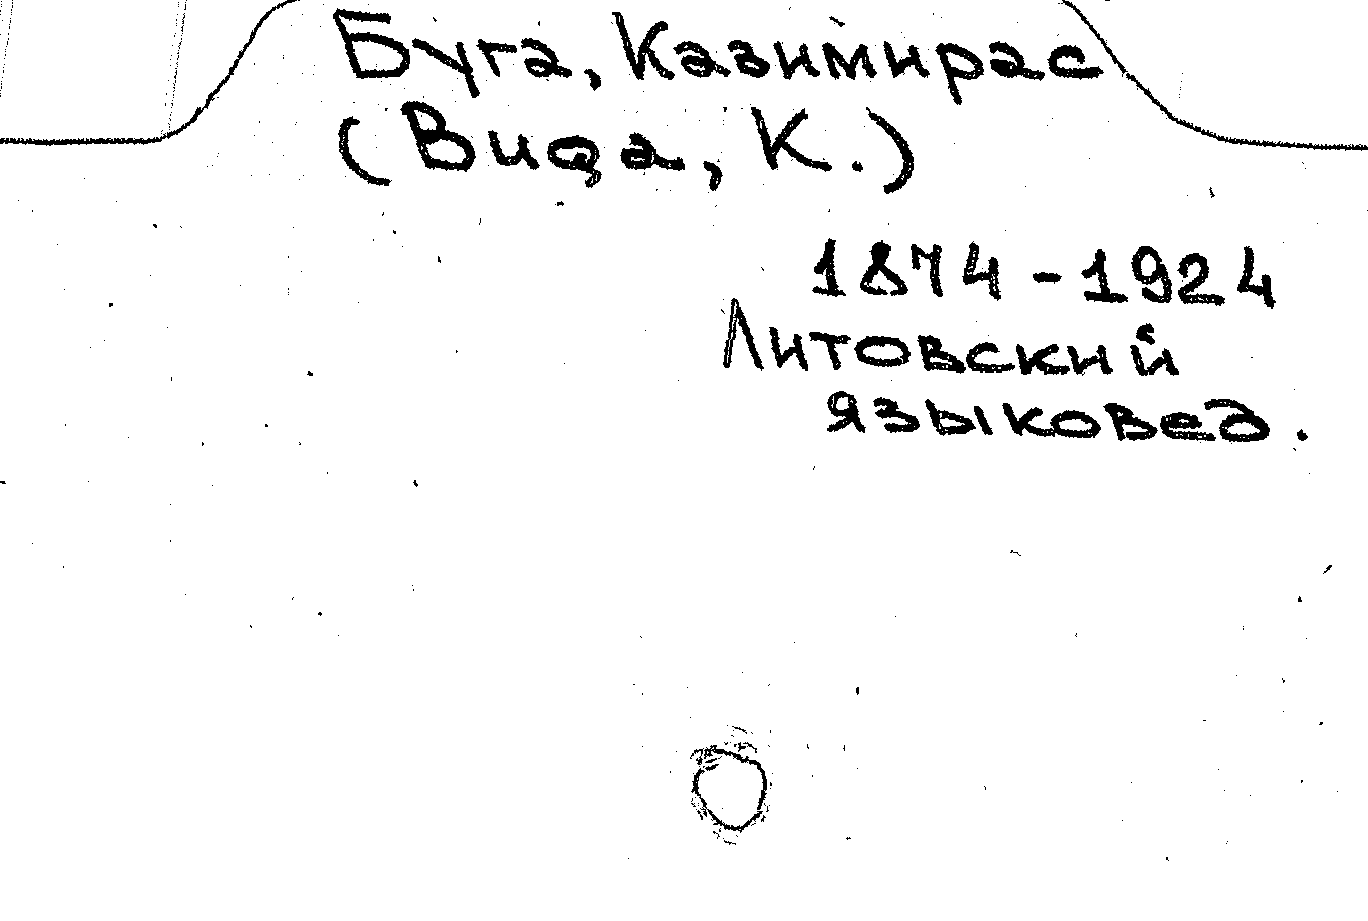 Буга, Казимирас
(Buga, K.)
1874-1924
Литовский
языковед.